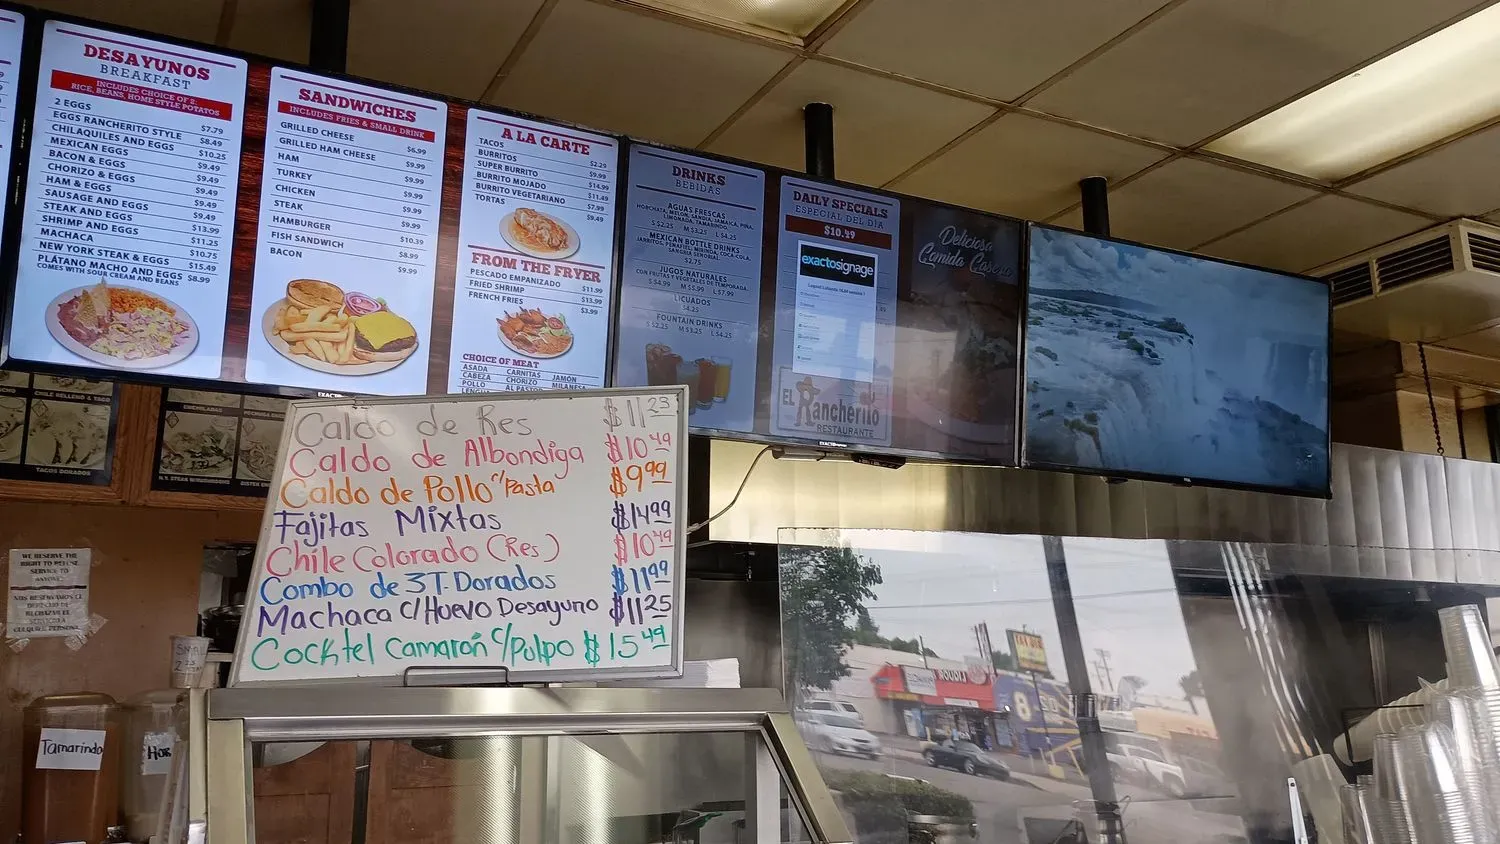 DESAYUNOS
BREAKFAST
INCLUDES CHOICE OF 2:
RICE, BEANS, HOME STYLE POTATOES
2 EGGS $7.79
EGGS RANCHERITO STYLE $8.49
CHILAQUILES AND EGGS $10.25
MEXICAN EGGS $9.49
BACON & EGGS $9.49
CHORIZO & EGGS $9.49
HAM & EGGS $9.49
SAUSAGE AND EGGS $9.49
STEAK AND EGGS $13.99
SHRIMP AND EGGS $11.25
MACHACA $10.75
NEW YORK STEAK & EGGS $15.49
PLÁTANO MACHO AND EGGS $8.99
COMES WITH SOUR CREAM AND BEANS
SANDWICHES
INCLUDES FRIES & SMALL DRINK
GRILLED CHEESE $6.99
GRILLED HAM CHEESE $9.99
HAM $9.99
TURKEY $9.99
CHICKEN $9.99
STEAK $9.99
HAMBURGER $10.39
FISH SANDWICH $8.99
BACON $9.99
A LA CARTE
TACOS $2.29
BURRITOS $9.99
SUPER BURRITO $14.99
BURRITO MOJADO $11.49
BURRITO VEGETARIANO $7.99
TORTAS $9.49
FROM THE FRYER
PESCADO EMPANIZADO $11.99
FRIED SHRIMP $13.99
FRENCH FRIES $3.99
CHOICE OF MEAT
ASADA CARNITAS JAMÓN
CABEZA CHORIZO MILANESA
POLLO AL PASTOR
LENGUA
DRINKS
BEBIDAS
AGUAS FRESCAS
HORCHATA, MELON, SANDIA, JAMAICA, PIÑA,
LIMONADA, TAMARINDO
S $2.25 M $3.25 L $4.25
MEXICAN BOTTLE DRINKS
JARRITOS, PEÑAFIEL, MIRINDA, COCA-COLA,
SANGRIA SEÑORIAL
$2.75
JUGOS NATURALES
CON FRUTAS Y VEGETALES DE TEMPORADA
S $4.99 M $5.99 L $7.99
LICUADOS
$4.25
FOUNTAIN DRINKS
S $2.25 M $3.25 L $4.25
DAILY SPECIALS
ESPECIAL DEL DÍA
$10.49
exactosignage
EL Rancherito
RESTAURANTE
Deliciosa
Comida Casera
Caldo de Res $11 23
Caldo de Albondiga $10 49
Caldo de Pollo c/Pasta $9 99
Fajitas Mixtas $14 99
Chile Colorado (Res) $10 49
Combo de 3 T. Dorados $11 99
Machaca c/Huevo Desayuno $11 25
Cocktel Camarón c/Pulpo $15 49
CHILE RELLENO & TACO
TACOS DORADOS
ENCHILADAS
N.Y. STEAK W/MUSHROOMS
WE RESERVE THE
RIGHT TO REFUSE
SERVICE TO
ANYONE
NOS RESERVAMOS EL
DERECHO DE
RECHAZAR EL
SERVICIO A
CUALQUIER PERSONA
Tamarindo